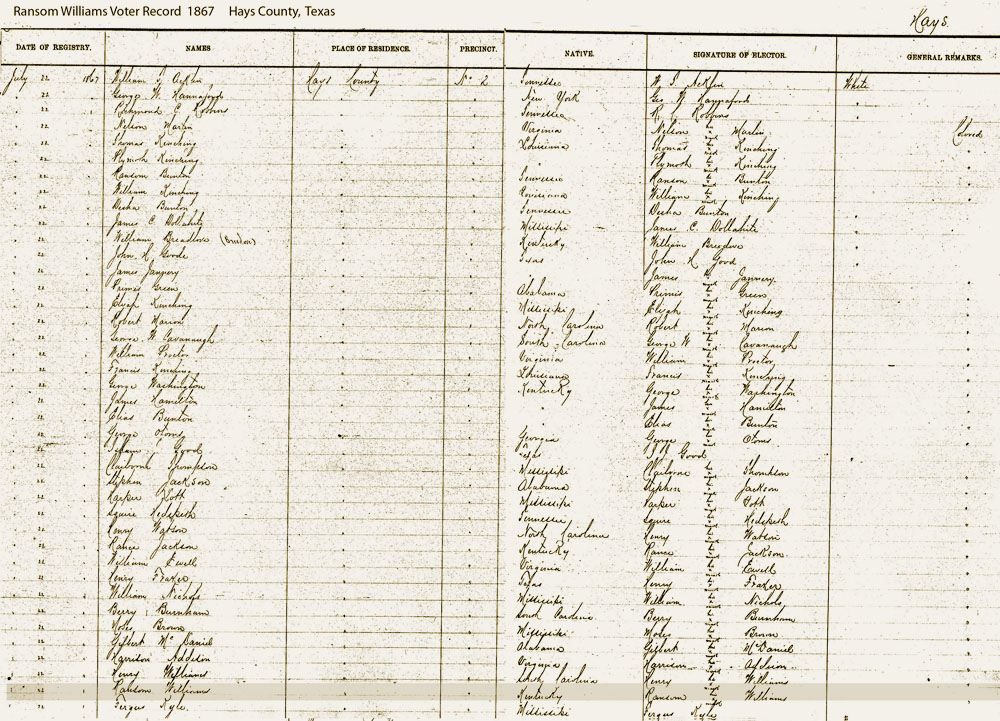 Ransom Williams Voter Record 1867 Hays County, Texas
Hays.
DATE OF REGISTRY. NAMES PLACE OF RESIDENCE. PRECINCT. NATIVE. SIGNATURE OF ELECTOR. GENERAL REMARKS.
July 22 1867 William G. Acklin Hays County No 2 Tennessee W. G. Acklin White
22 George W Hannaford New York Geo W Hannaford
22 Richmond C Robbins Tennessee R C Robbins
22 Nelson Martin Virginia Nelson Martin Colored
22 Thomas Kinching Louisiana Thomas Kinching
22 Plymoth Kinching " Plymoth Kinching
22 Ranson Bunton Tennessee Ranson Bunton
22 William Kinching Louisiana William Kinching
22 Desha Bunton Tennessee Desha Bunton
22 James C Dollahite Missisipi James C. Dollahite
22 William Breedlove Kentucky William Breedlove
22 John H. Goode Texas John H Good
22 James Jannery James Jannery
22 Primus Green Alabama Primis Green
22 Elijah Kinching Missisipi Elijah Kinching
22 Robert Marion North Carolina Robert Marion
22 George W Cavanaugh South Carolina George W Cavanaugh
22 William Proctor Virginia William Proctor
22 Francis Kinching Louisiana Francis Kinching
22 George Washington Kentucky George Washington
22 James Hamilton " James Hamilton
22 Elias Bunton " Elias Bunton
22 George Georgia George
22 Isham Good Texas Good
22 Claiborne Thompson Missisipi Claiborne Thompson
22 Stephen Jackson Alabama Stephen Jackson
22 Parker Hoth Missisipi Parker Hoth
22 Squire Hedspeth Tennessee Squire Hedspeth
22 Henry Watson North Carolina Henry Watson
22 Rance Jackson Kentucky Rance Jackson
22 William Ewell Virginia William Ewell
22 Henry Fraker Texas Henry Fraker
22 William Nichols Missisipi William Nichols
22 Berry Burnham South Carolina Berry Burnham
22 Moses Brown Missisipi Moses Brown
22 Gilbert McDaniel Alabama Gilbert McDaniel
22 Harrison Addison Virginia Harrison Addison
22 Henry Williams South Carolina Henry Williams
22 Ransom Williams Kentucky Ransom Williams
22 Fergus Kyle Missisipi Fergus Kyle